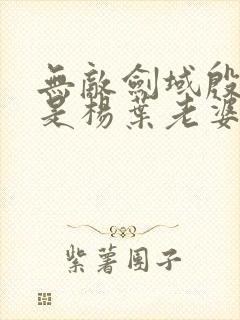 無敵劍域殷
是楊葉老婆
紫薯團子